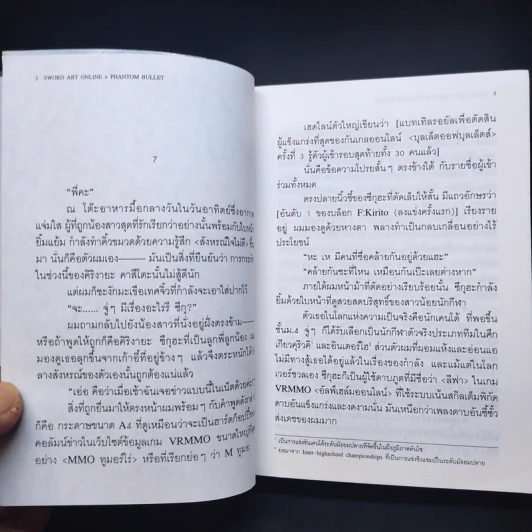 2 SWORD ART ONLINE 6 PHANTOM BULLET
7
“พี่คะ”
ณ โต๊ะอาหารมื้อกลางวันในวันอาทิตย์ซึ่งอากาศ
แจ่มใส ผู้ที่ถูกน้องสาวสุดที่รักเรียกว่าอย่างนั้นพร้อมกับใบหน้า
ยิ้มแย้ม กำลังทำคิ้วขมวดด้วยความรู้สึก <สังหรณ์ใจไม่ดี>
มา นั่นก็คือตัวผมเอง—— มันเป็นสิ่งที่ยืนยันว่า การกระทำ
ในช่วงนี้ของคิริงายะ คาสึโตะนั้นไม่สู้ดีนัก
แต่ผมก็ชะงักมะเขือเทศจิ๋วที่กำลังจะเอาใส่ปากไว้
“จ๊ะ...... จู่ๆ มีเรื่องอะไรรึ ซึกุ?”
ผมถามกลับไปยังน้องสาวที่นั่งอยู่ฝั่งตรงข้าม——
หรือถ้าพูดให้ถูกก็คือคิริงายะ ซึกุฮะที่เป็นลูกพี่ลูกน้อง
มองดูเธอลุกขึ้นจากเก้าอี้ที่อยู่ข้างๆ แล้วจึงตระหนักได้
ลางสังหรณ์ของตัวเองนั้นถูกต้องแน่แล้ว
“เอ่อ คือว่าเมื่อเช้าฉันเจอข่าวแบบนี้ในเน็ตด้วยค่ะ”
สิ่งที่ถูกยื่นมาให้ตรงหน้าผมพร้อมๆ กับคำพูดดังกล่าว
ก็คือ กระดาษขนาด A4 ที่ดูเหมือนว่าจะเป็นฮาร์ดก๊อปปี้
คอลัมน์ข่าวในเว็บไซต์ข้อมูลเกม VRMMO ขนาดใหญ่ที่สุด
อย่าง <MMO ทูมอร์โร่> หรือที่เรียกย่อๆ ว่า M ทูมอร์
3
เฮดไลน์ตัวใหญ่เขียนว่า [แบทเทิลรอยัลเพื่อตัดสิน
ผู้แข็งแกร่งที่สุดของกันเกลออนไลน์ <บุลเล็ตออฟบุลเล็ตส์>
ครั้งที่ 3 รู้ตัวผู้เข้ารอบสุดท้ายทั้ง 30 คนแล้ว]
นั่นคือข้อความโปรยสั้นๆ ตรงข้างใต้ กับรายชื่อผู้เข้า
ร่วมทั้งหมด
ตรงปลายนิ้วชี้ของซึกุฮะที่ตัดเล็บให้สั้น มีแถวอักษรว่า
[อันดับ 1 ของบล็อก F:Kirito (ลงแข่งครั้งแรก)] เรียงราย
อยู่ ผมมองดูด้วยหางตา พลางทำเป็นกลบเกลื่อนอย่างไร้
ประโยชน์
“หะ เห มีคนที่ชื่อคล้ายกันอยู่ด้วยแฮะ”
“คล้ายกันซะที่ไหน เหมือนกันเป๊ะเลยต่างหาก”
ภายใต้ผมหน้าม้าที่ตัดอย่างเรียบร้อยนั้น ซึกุฮะกำลัง
ยิ้มด้วยใบหน้าที่ดูสวยสดบริสุทธิ์ของสาวน้อยนักกีฬา
ตัวเธอในโลกแห่งความเป็นจริงคือนักเคนโด้ ที่พอขึ้น
ชั้นม.4 จู่ๆ ก็ได้รับเลือกเป็นนักกีฬาตัวจริงประเภททีมในศึก
เกียวคุริวคิ¹ และอินเตอร์ไฮ² ส่วนตัวผมที่ผอมแห้งและอ่อนแอ
ไม่มีทางสู้เธอได้อยู่แล้วในเรื่องของกำลัง และแม้แต่ในโลก
เวอร์ชวลเอง ซึกุฮะก็เป็นผู้ใช้ดาบภูตที่มีชื่อว่า <ลีฟา> ในเกม
VRMMO <อัลฟ์เฮล์มออนไลน์> ที่ใช้ระบบเน้นสกิลเต็มพิกัด
ดาบอันแข็งแกร่งและงดงามนั้น มันเหนือกว่าเพลงดาบอันขี้ขั้ว
ส่งเดชของผมมาก
¹ เป็นการแข่งขันเคนโด้ระดับมัธยมปลายที่จัดขึ้นในฝั่งภูมิภาคคันไซ
² ย่อมาจาก Inter-highschool championships ที่เป็นการแข่งชิงแชมป์ในระดับมัธยมปลาย